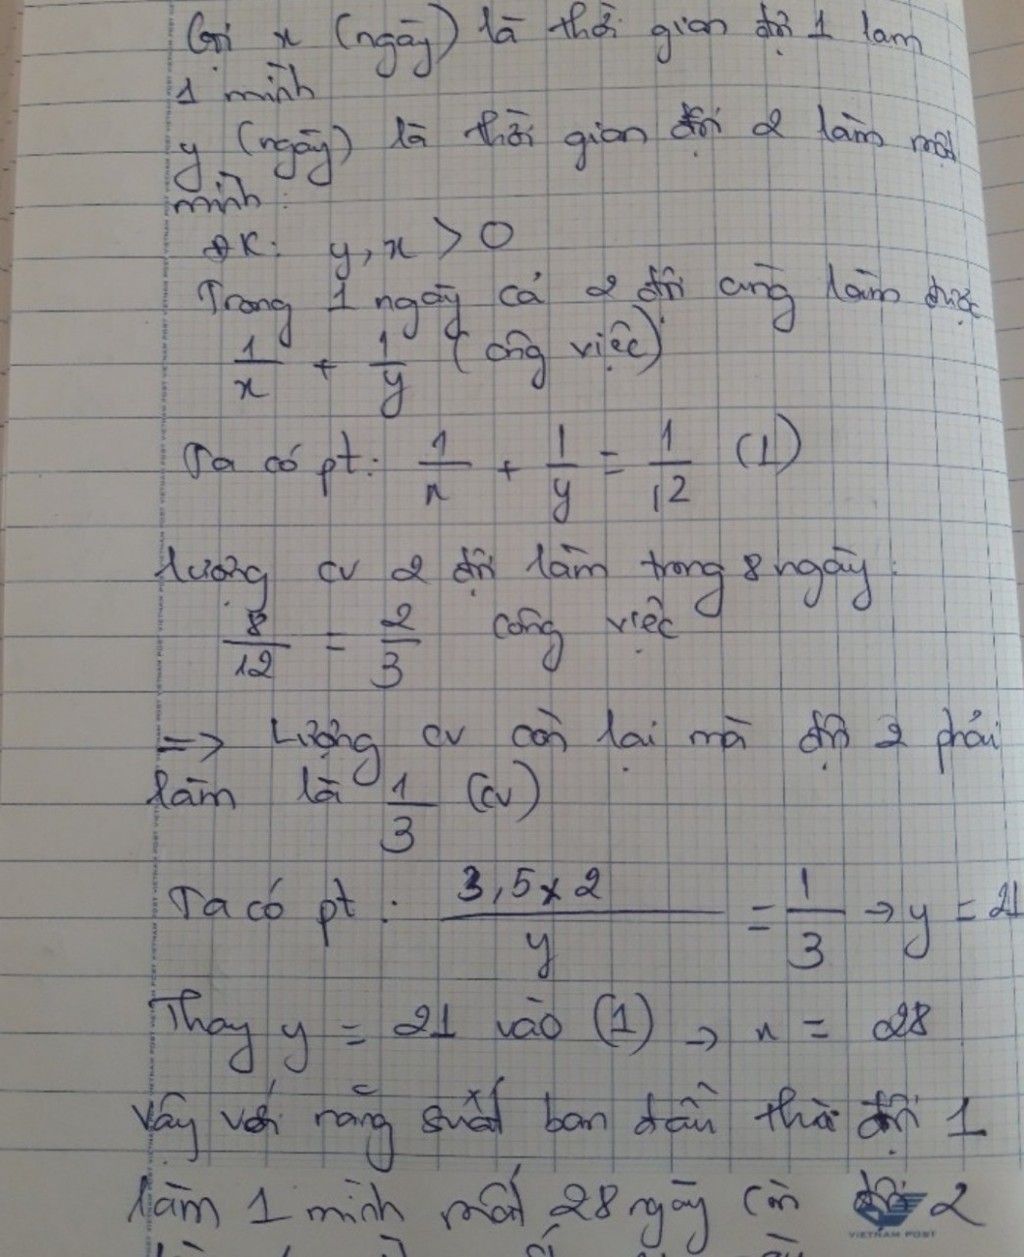 Gọi x (ngày) là thời gian đội 1 làm
1 mình
y (ngày) là thời gian đội 2 làm một
mình.
ĐK: y, x > 0
Trong 1 ngày cả 2 đội cùng làm được
1/x + 1/y (công việc)
Ta có pt: 1/x + 1/y = 1/12 (1)
Lượng cv 2 đội làm trong 8 ngày:
8/12 = 2/3 công việc
=> Lượng cv còn lại mà đội 2 phải
làm là 1/3 (cv)
Ta có pt: 3,5 x 2 / y = 1/3 → y = 21
Thay y = 21 vào (1) → x = 28
Vậy với năng suất ban đầu thì đội 1
làm 1 mình mất 28 ngày còn đội 2
VIETNAM POST